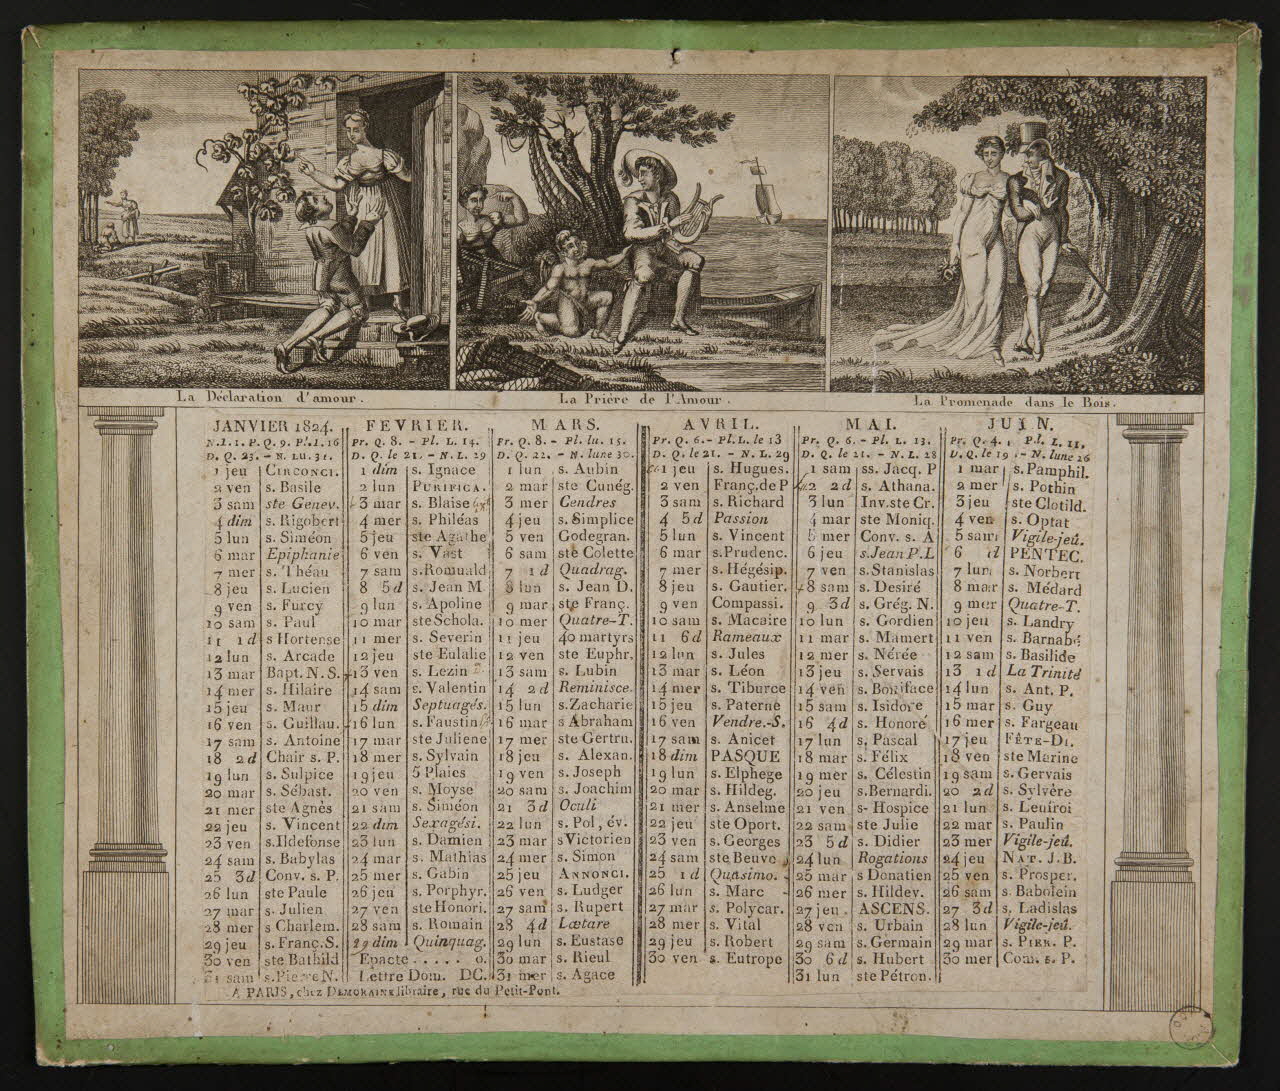 La Déclaration d'amour.
La Prière de l'Amour.
La Promenade dans le Bois.
JANVIER 1824.
N.l. 1. P. Q. 9. Pl. l. 16
D. Q. 23. - N. LU. 31.
1 jeu CIRCONCI.
2 ven s. Basile
3 sam ste Genev.
4 dim s. Rigobert
5 lun s. Siméon
6 mar Epiphanie
7 mer s. Théau
8 jeu s. Lucien
9 ven s. Furcy
10 sam s. Paul
11 1 d s Hortense
12 lun s. Arcade
13 mar Bapt. N. S.
14 mer s. Hilaire
15 jeu s. Maur
16 ven s. Guillau.
17 sam s. Antoine
18 2 d Chair s. P.
19 lun s. Sulpice
20 mar s. Sébast.
21 mer ste Agnès
22 jeu s. Vincent
23 ven s. Ildefonse
24 sam s. Babylas
25 3 d Conv. s. P.
26 lun ste Paule
27 mar s. Julien
28 mer s Charlem.
29 jeu s. Franç. S.
30 ven ste Bathild
31 sam s. Pierre N.
FEVRIER.
Pr. Q. 8. - Pl. L. 14.
D. Q. le 21. - N. L. 29
1 dim s. Ignace
2 lun PURIFICA.
3 mar s. Blaise
4 mer s. Philéas
5 jeu ste Agathe
6 ven s. Vast
7 sam s. Romuald
8 5 d s. Jean M
9 lun s. Apoline
10 mar ste Schola.
11 mer s. Severin
12 jeu ste Eulalie
13 ven s. Lezin
14 sam s. Valentin
15 dim Septuagés.
16 lun s. Faustin
17 mar ste Juliene
18 mer s. Sylvain
19 jeu 5 Plaies
20 ven s. Moyse
21 sam s. Siméon
22 dim Sexagési.
23 lun s. Damien
24 mar s. Mathias
25 mer s. Gabin
26 jeu s. Porphyr.
27 ven ste Honori.
28 sam s. Romain
29 dim Quinquag.
Epacte . . . . . 0.
Lettre Dom. DC.
MARS.
Pr. Q. 8. - Pl. lu. 15.
D. Q. 22. - N. lune 30.
1 lun s. Aubin
2 mar ste Cunég.
3 mer Cendres
4 jeu s. Simplice
5 ven Godegran.
6 sam ste Colette
7 1 d Quadrag.
8 lun s. Jean D.
9 mar ste Franç.
10 mer Quatre-T.
11 jeu 40 martyrs
12 ven ste Euphr.
13 sam s. Lubin
14 2 d Reminisce.
15 lun s. Zacharie
16 mar s Abraham
17 mer ste Gertru.
18 jeu s. Alexan.
19 ven s. Joseph
20 sam s. Joachim
21 3 d Oculi
22 lun s. Pol, év.
23 mar s Victorien
24 mer s. Simon
25 jeu ANNONCI.
26 ven s. Ludger
27 sam s. Rupert
28 4d Lætare
29 lun s. Eustase
30 mar s. Rieul
31 mer s. Agace
AVRIL.
Pr. Q. 6. - Pl. L. le 13
D. Q. le 21. - N. L. 29
1 jeu s. Hugues.
2 ven Franç. de P
3 sam s. Richard
4 5d Passion
5 lun s. Vincent
6 mar s. Prudenc.
7 mer s. Hégésip.
8 jeu s. Gautier.
9 ven Compassi.
10 sam s. Macaire
11 6 d Rameaux
12 lun s. Jules
13 mar s. Léon
14 mer s. Tiburce
15 jeu s. Paterne
16 ven Vendre.-S.
17 sam s. Anicet
18 dim PASQUE
19 lun s. Elphege
20 mar s. Hildeg.
21 mer s. Anselme
22 jeu ste Oport.
23 ven s. Georges
24 sam ste Beuve
25 1 d Quasimo.
26 lun s. Marc
27 mar s. Polycar.
28 mer s. Vital
29 jeu s. Robert
30 ven s. Eutrope
MAI.
Pr. Q. 6. - Pl. L. 13.
D. Q. le 21. - N. L. 28
1 sam ss. Jacq. P
2 2 d s. Athana.
3 lun Inv. ste Cr.
4 mar ste Moniq.
5 mer Conv. s. A
6 jeu s. Jean P. L
7 ven s. Stanislas
8 sam s. Desiré
9 3d s. Grég. N.
10 lun s. Gordien
11 mar s. Mamert
12 mer s. Nérée
13 jeu s. Servais
14 ven s. Boniface
15 sam s. Isidore
16 4d s. Honoré
17 lun s. Pascal
18 mar s. Félix
19 mer s. Célestin
20 jeu s. Bernardi.
21 ven s- Hospice
22 sam ste Julie
23 5 d s. Didier
24 lun Rogations
25 mar s Donatien
26 mer s. Hildev.
27 jeu ASCENS.
28 ven s. Urbain
29 sam s. Germain
30 6 d s. Hubert
31 lun ste Pétron.
JUIN.
Pr. Q. 4. , Pl. L. 11,
D. Q. le 19 . - N. lune 26
1 mar s. Pamphil.
2 mer s. Pothin
3 jeu ste Clotild.
4 ven s. Optat
5 sam Vigile-jeû.
6 d PENTEC.
7 lun s. Norbert
8 mar s. Médard
9 mer Quatre-T.
10 jeu s. Landry
11 ven s. Barnabé
12 sam s. Basilide
13 1 d La Trinité
14 lun s. Ant. P.
15 mar s. Guy
16 mer s. Fargeau
17 jeu FÊTE-DI.
18 ven ste Marine
19 sam s. Gervais
20 2 d s. Sylvère
21 lun s. Leufroi
22 mar s. Paulin
23 mer Vigile-jeû.
24 jeu NAT. J. B.
25 ven s. Prosper.
26 sam s. Babolein
27 3 d s. Ladislas
28 lun Vigile-jeû.
29 mar s. PIER. P.
30 mer Com. s. P.
A PARIS, chez DEMORAINE libraire, rue du Petit-Pont.